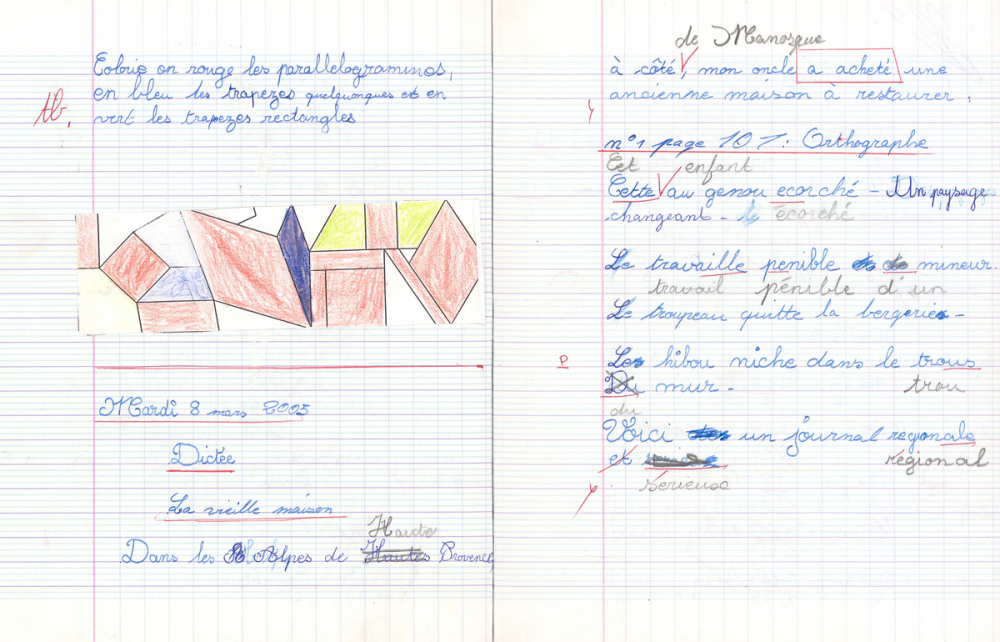 Colorie en rouge les parallélogrammes,
en bleu les trapezes quelquonques et en
vert les trapezes rectangles
tb.
Mardi 8 mars 2005
Dictée
La vieille maison
Haute
Dans les Alpes de Hautes Provence,
de Manosque
à côté, mon oncle a acheté une
ancienne maison à restaurer.
n°1 page 107: Orthographe
Cet enfant
Cette au genou ecorché - Un paysage
changeant - écorché
Le travaille penible de mineur.
travail pénible d'un
Le troupeau quitte la bergerie -
P
Les hibou niche dans le trous
Du mur - trou
du
Voici un journal regionale
et régional
serieuse